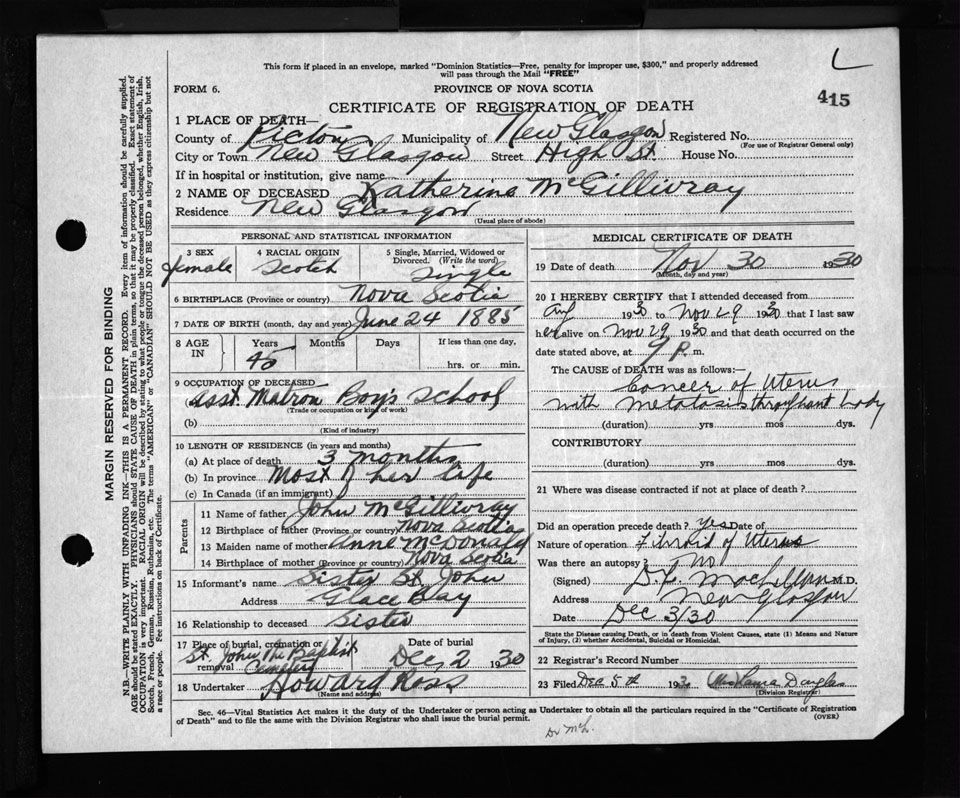 This form if placed in an envelope, marked "Dominion Statistics—Free, penalty for improper use, $300," and properly addressed
will pass through the Mail "FREE"
L
FORM 6.
PROVINCE OF NOVA SCOTIA
415
CERTIFICATE OF REGISTRATION OF DEATH
1 PLACE OF DEATH—
County of Pictou Municipality of New Glasgow Registered No.
(For use of Registrar General only)
City or Town New Glasgow Street High St. House No.
If in hospital or institution, give name
2 NAME OF DECEASED Katherine McGillivray
Residence New Glasgow
(Usual place of abode)
PERSONAL AND STATISTICAL INFORMATION
3 SEX
female
4 RACIAL ORIGIN
Scotch
5 Single, Married, Widowed or
Divorced. (Write the word)
Single
6 BIRTHPLACE (Province or country) Nova Scotia
7 DATE OF BIRTH (month, day and year) June 24 1885
8 AGE IN
Years Months Days If less than one day,
45 hrs. or min.
9 OCCUPATION OF DECEASED
(a) Asst Matron Boys School
(Trade or occupation or kind of work)
(b)
(Kind of industry)
10 LENGTH OF RESIDENCE (in years and months)
(a) At place of death 3 months
(b) In province Most of her life
(c) In Canada (if an immigrant)
Parents
11 Name of father John McGillivray
12 Birthplace of father (Province or country) Nova Scotia
13 Maiden name of mother Anne McDonald
14 Birthplace of mother (Province or country) Nova Scotia
15 Informant's name Sister St. John
Address Glace Bay
16 Relationship to deceased Sister
17 Place of burial, cremation or removal Date of burial
St. John The Baptist Cemetery Dec 2 1930
18 Undertaker Howard Ross
(Name and address)
MEDICAL CERTIFICATE OF DEATH
19 Date of death Nov 30 1930
(Month, day and year)
20 I HEREBY CERTIFY that I attended deceased from
Aug 1930 to Nov 29 1930 that I last saw
her alive on Nov 29 1930 and that death occurred on the
date stated above, at 9 P. m.
The CAUSE of DEATH was as follows:—
Cancer of Uterus
with Metatosis throughout body
(duration) yrs mos dys.
CONTRIBUTORY
(duration) yrs. mos. dys.
21 Where was disease contracted if not at place of death?
Did an operation precede death? Yes Date of
Nature of operation Fibroid of Uterus
Was there an autopsy? No
(Signed) M.D.
Address New Glasgow
Date Dec 3/30
State the Disease causing Death, or in death from Violent Causes, state (1) Means and Nature
of Injury, (2) whether Accidental, Suicidal or Homicidal.
22 Registrar's Record Number
23 Filed Dec 5th 1930
(Division Registrar)
Sec. 46—Vital Statistics Act makes it the duty of the Undertaker or person acting as Undertaker to obtain all the particulars required in the "Certificate of Registration
of Death" and to file the same with the Division Registrar who shall issue the burial permit. (OVER)
MARGIN RESERVED FOR BINDING
N.B.—WRITE PLAINLY WITH UNFADING INK—THIS IS A PERMANENT RECORD. Every item of information should be carefully supplied.
AGE should be stated EXACTLY. PHYSICIANS should STATE CAUSE OF DEATH in plain terms, so that it may be properly classified. Exact statement of
OCCUPATION is very important. RACIAL ORIGIN will be described by stating to what people or tongue the deceased person belonged, whether English, Irish,
Scotch, French, German, Russian, Ruthenian, etc. The terms "AMERICAN" or "CANADIAN" SHOULD NOT BE USED as they express citizenship but not
a race or people. See instructions on back of Certificate.